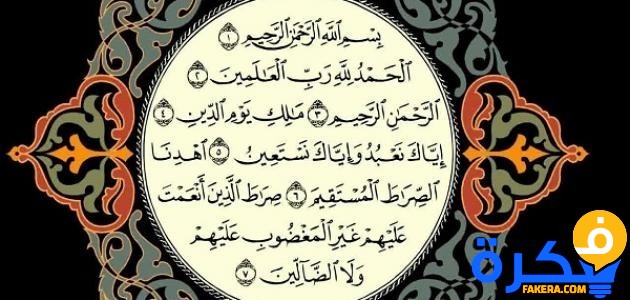 بِسْمِ ٱللَّهِ ٱلرَّحْمَٰنِ ٱلرَّحِيمِ ١
ٱلْحَمْدُ لِلَّهِ رَبِّ ٱلْعَٰلَمِينَ ٢
ٱلرَّحْمَٰنِ ٱلرَّحِيمِ ٣ مَٰلِكِ يَوْمِ ٱلدِّينِ ٤
إِيَّاكَ نَعْبُدُ وَإِيَّاكَ نَسْتَعِينُ ٥ ٱهْدِنَا
ٱلصِّرَٰطَ ٱلْمُسْتَقِيمَ ٦ صِرَٰطَ ٱلَّذِينَ أَنْعَمْتَ
عَلَيْهِمْ غَيْرِ ٱلْمَغْضُوبِ عَلَيْهِمْ
وَلَا ٱلضَّآلِّينَ ٧
فكرة
FAKERA.COM